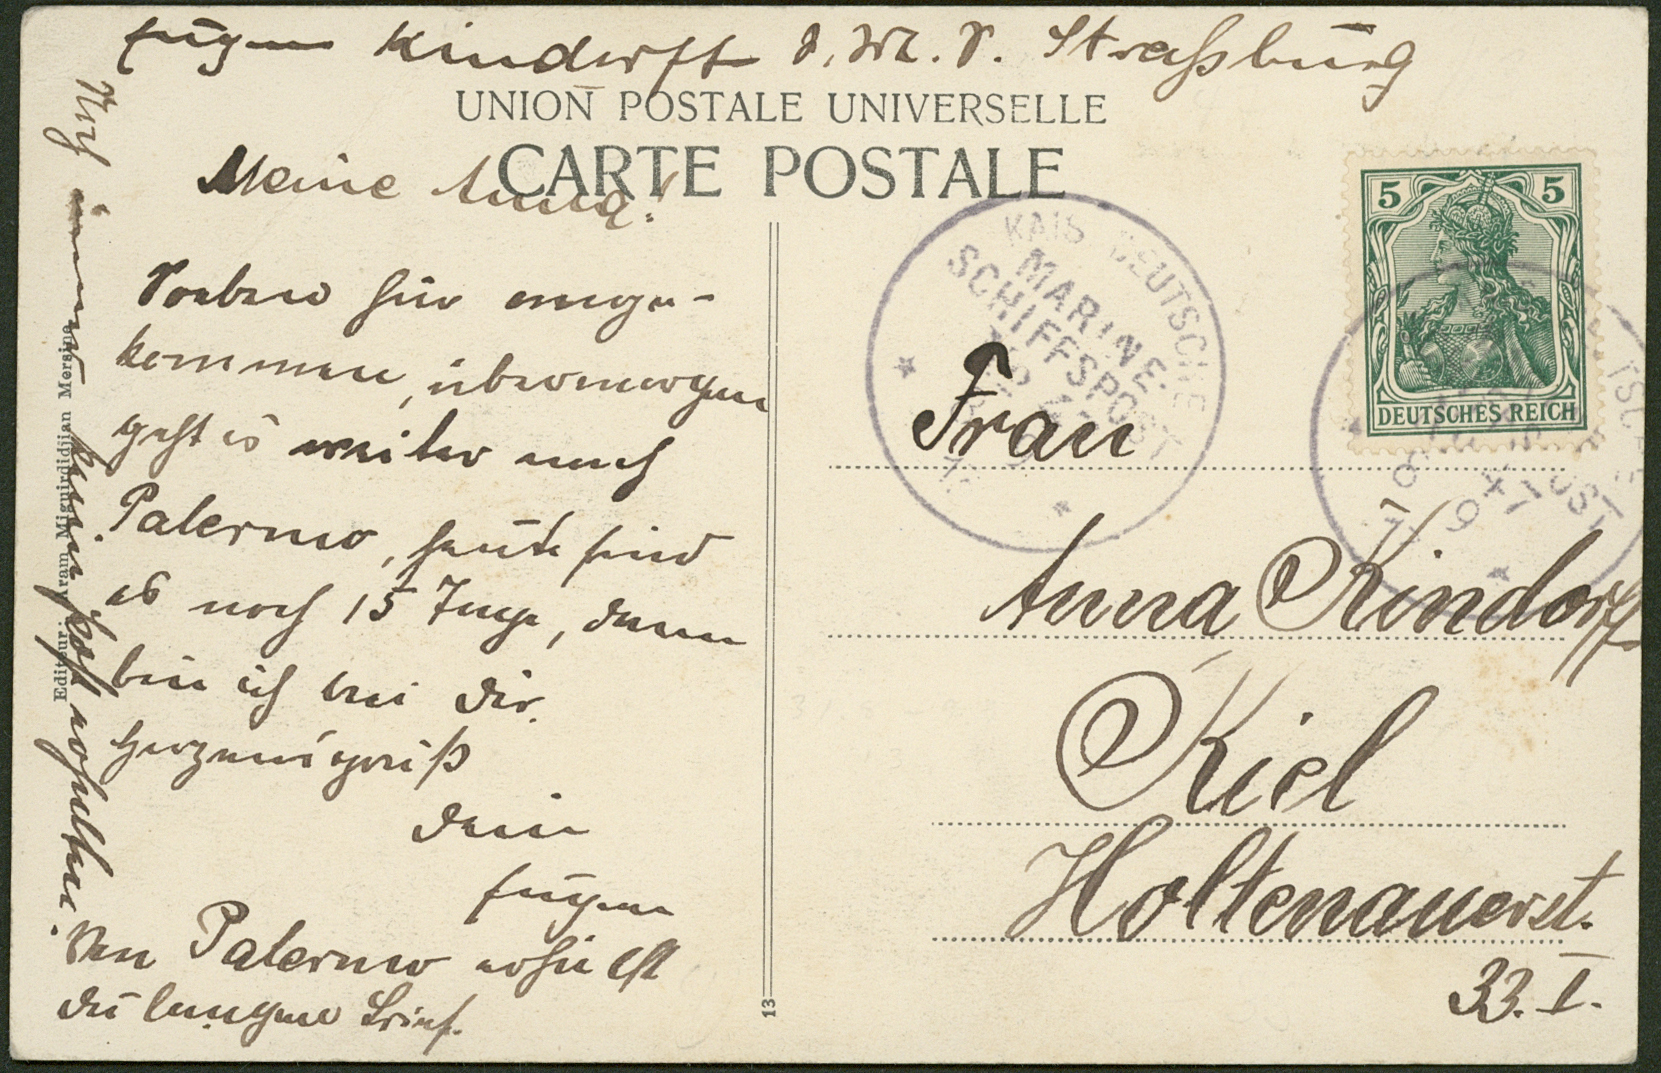 Eugen Kindorff S. M. S. Straßburg
UNION POSTALE UNIVERSELLE
CARTE POSTALE
Meine Anna!
Soeben hier ange-
kommen, übermorgen
geht es weiter nach
Palermo, heute sind
es noch 15 Tage, dann
bin ich bei Dir.
Herzensgruß
Dein
Eugen
Von Palermo erhielst
Du langen Brief.
Noch immer keine Post erhalten.
Editeur: Avram Miguirdidjian Mersine
13
KAIS. DEUTSCHE
MARINE-
SCHIFFSPOST
No 47
5 5
DEUTSCHES REICH
Frau
Anna Kindorff
Kiel
Holtenauerst.
33. I.